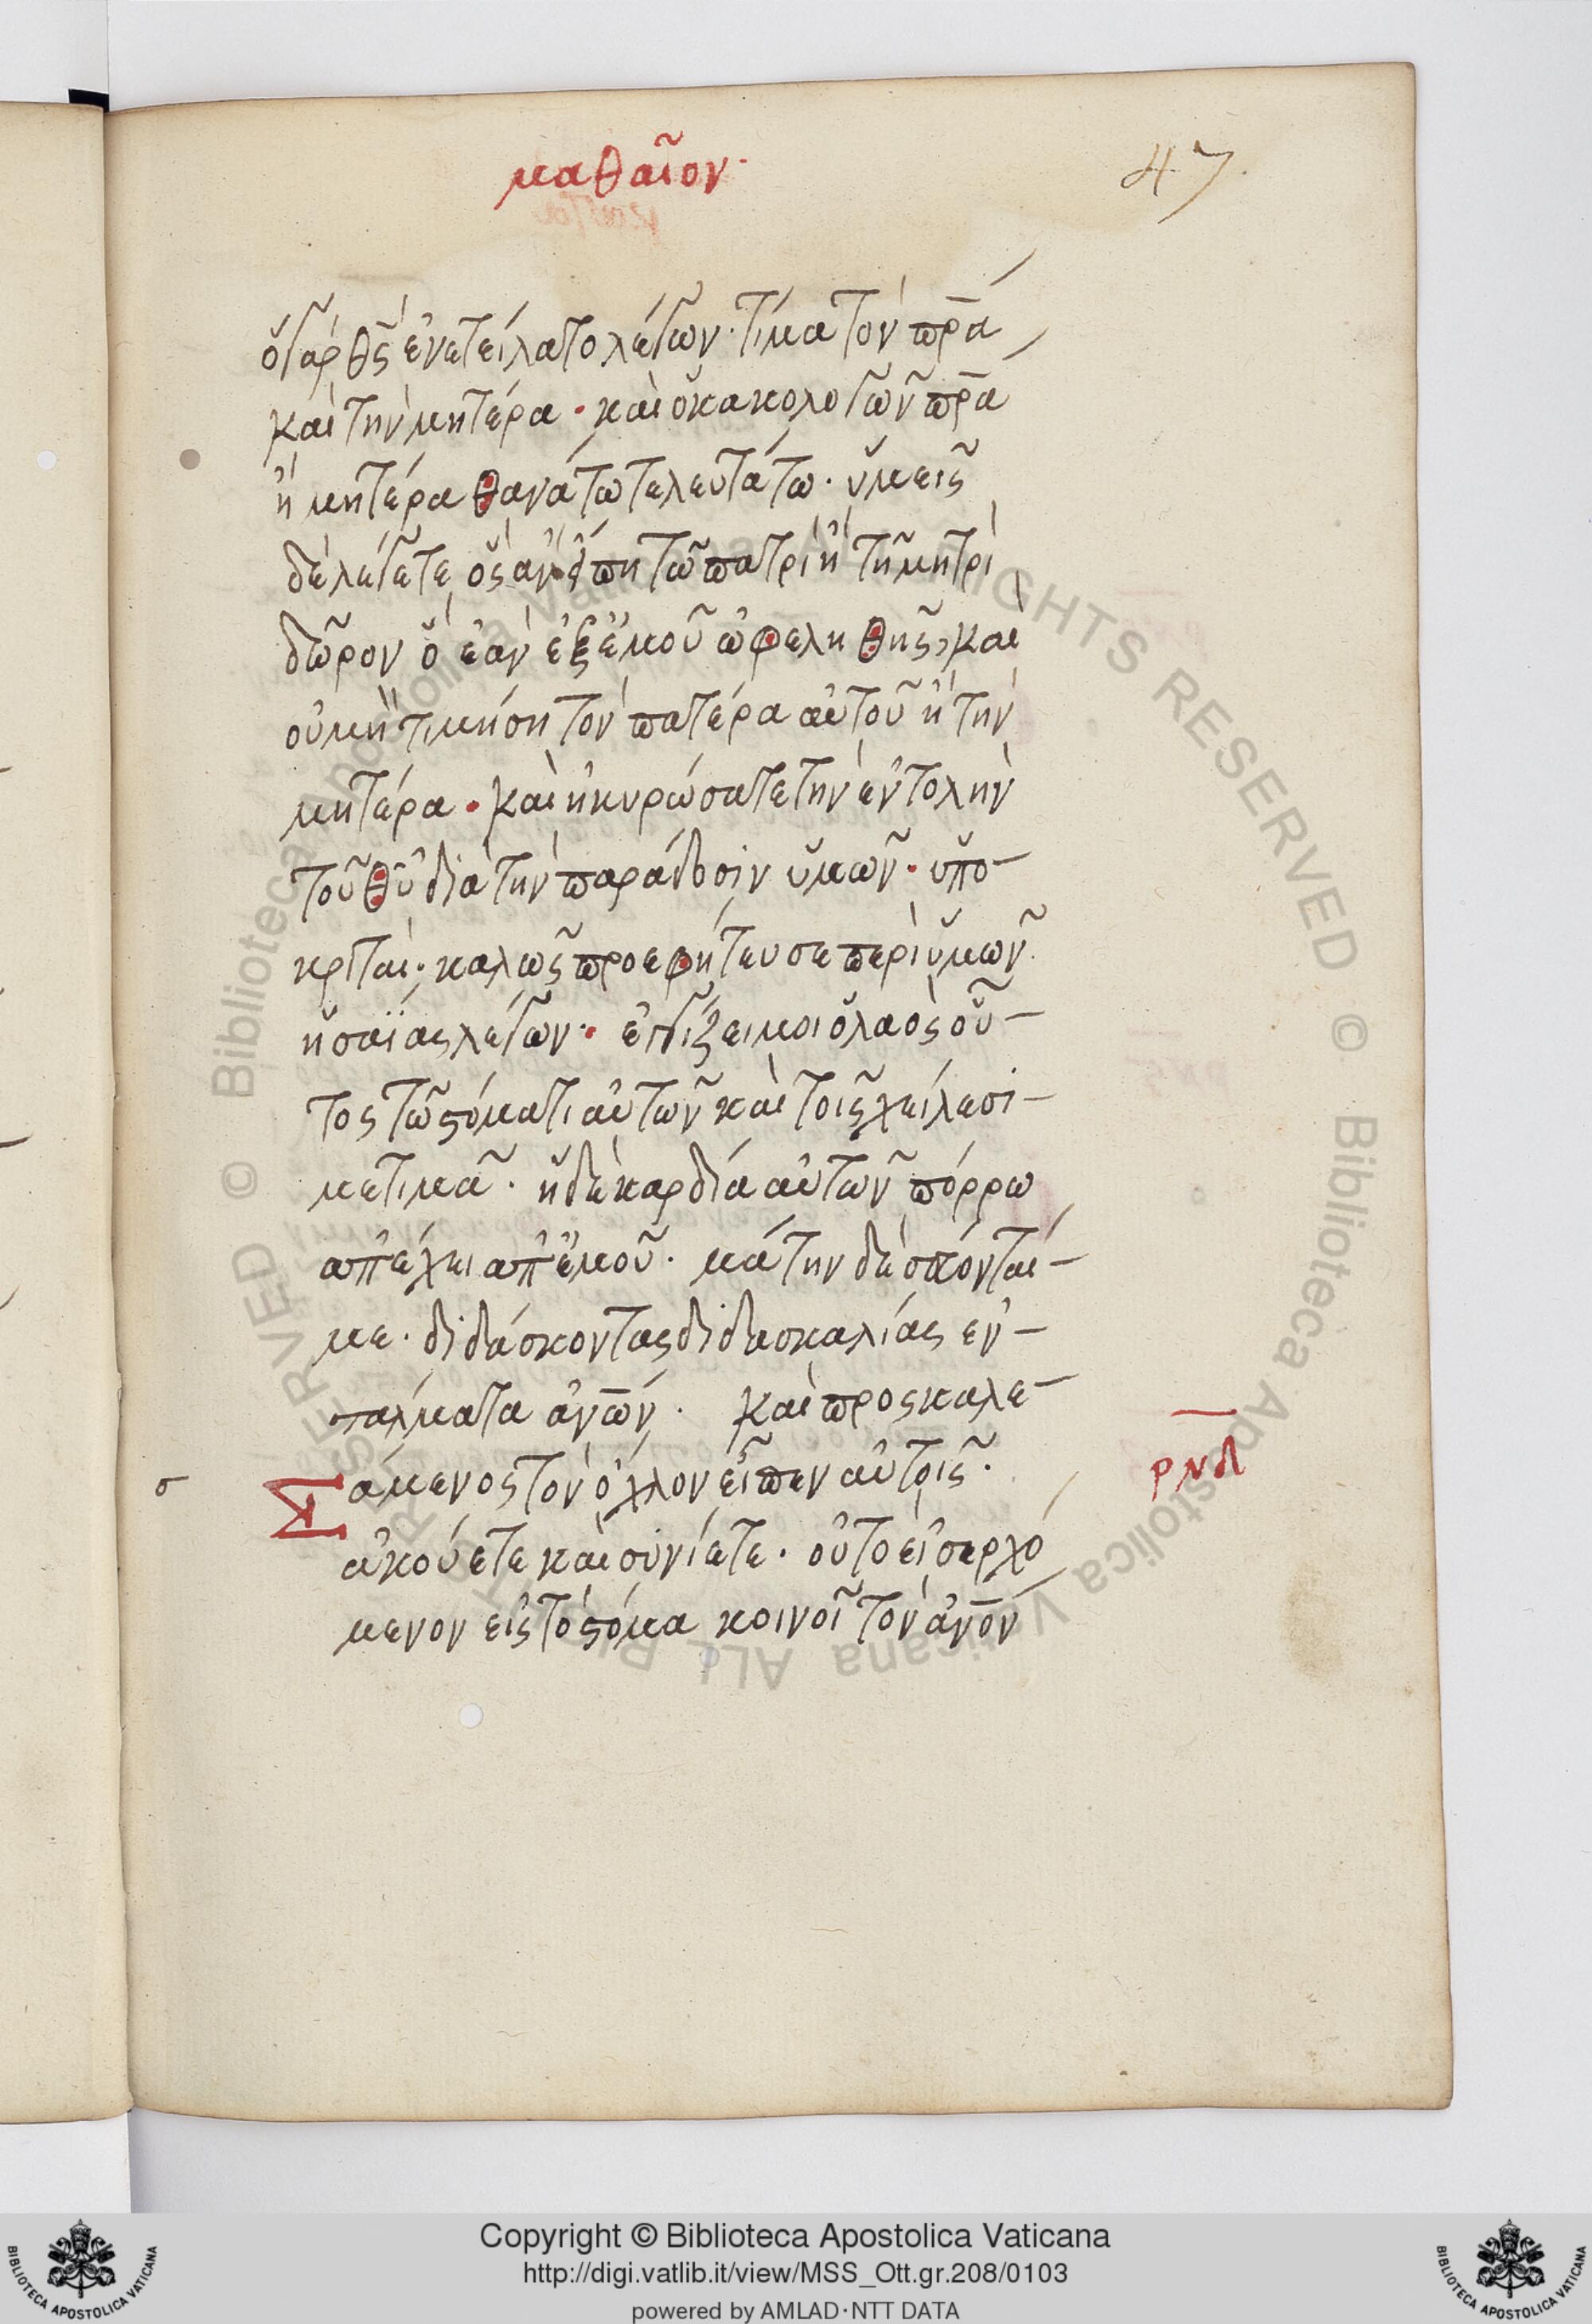 μαθαῖον·
47
ὁ γὰρ θς ἐνετείλατο λέγων· τίμα τὸν πρα
καὶ τὴν μητέρα · καὶ ὁ κακολογῶν πρα
ἢ μητέρα θανάτω τελευτάτω · ὑμεῖς
δὲ λέγετε ὃς ἂν εἴπη τῶ πατρὶ ἢ τῆ μητρὶ
δῶρον ὃ ἐὰν ἐξ ἐμοῦ ὠφεληθῆς, καὶ
οὐ μὴ τιμήση τὸν πατέρα αὐτοῦ ἢ τὴν
μητέρα · καὶ ἠκυρώσατε τὴν ἐντολὴν
τοῦ θυ διὰ τὴν παράδοσιν ὑμῶν · ὑπο-
κριταὶ · καλῶς προεφήτευσε περὶ ὑμῶν
ἡσαΐας λέγων · ἐγγίζει μοι ὁ λαὸς οὗ-
τος τῶ στόματι αὐτῶν καὶ τοῖς χείλεσι-
με τιμᾶ · ἡ δὲ καρδία αὐτῶν πόρρω
ἀπέχει ἀπ' ἐμοῦ · μάτην δὲ σέβονται-
με · διδάσκοντες διδασκαλίας ἐν-
τάλματα ἀνων · καὶ προσκαλε-
σ Σάμενος τὸν ὄχλον εἶπεν αὐτοῖς · ρνδ
ἀκούετε καὶ συνίετε · οὐ τὸ εἰσερχό
μενον εἰς τὸ στόμα κοινοῖ τὸν ἀνον
Copyright © Biblioteca Apostolica Vaticana
http://digi.vatlib.it/view/MSS_Ott.gr.208/0103
powered by AMLAD·NTT DATA